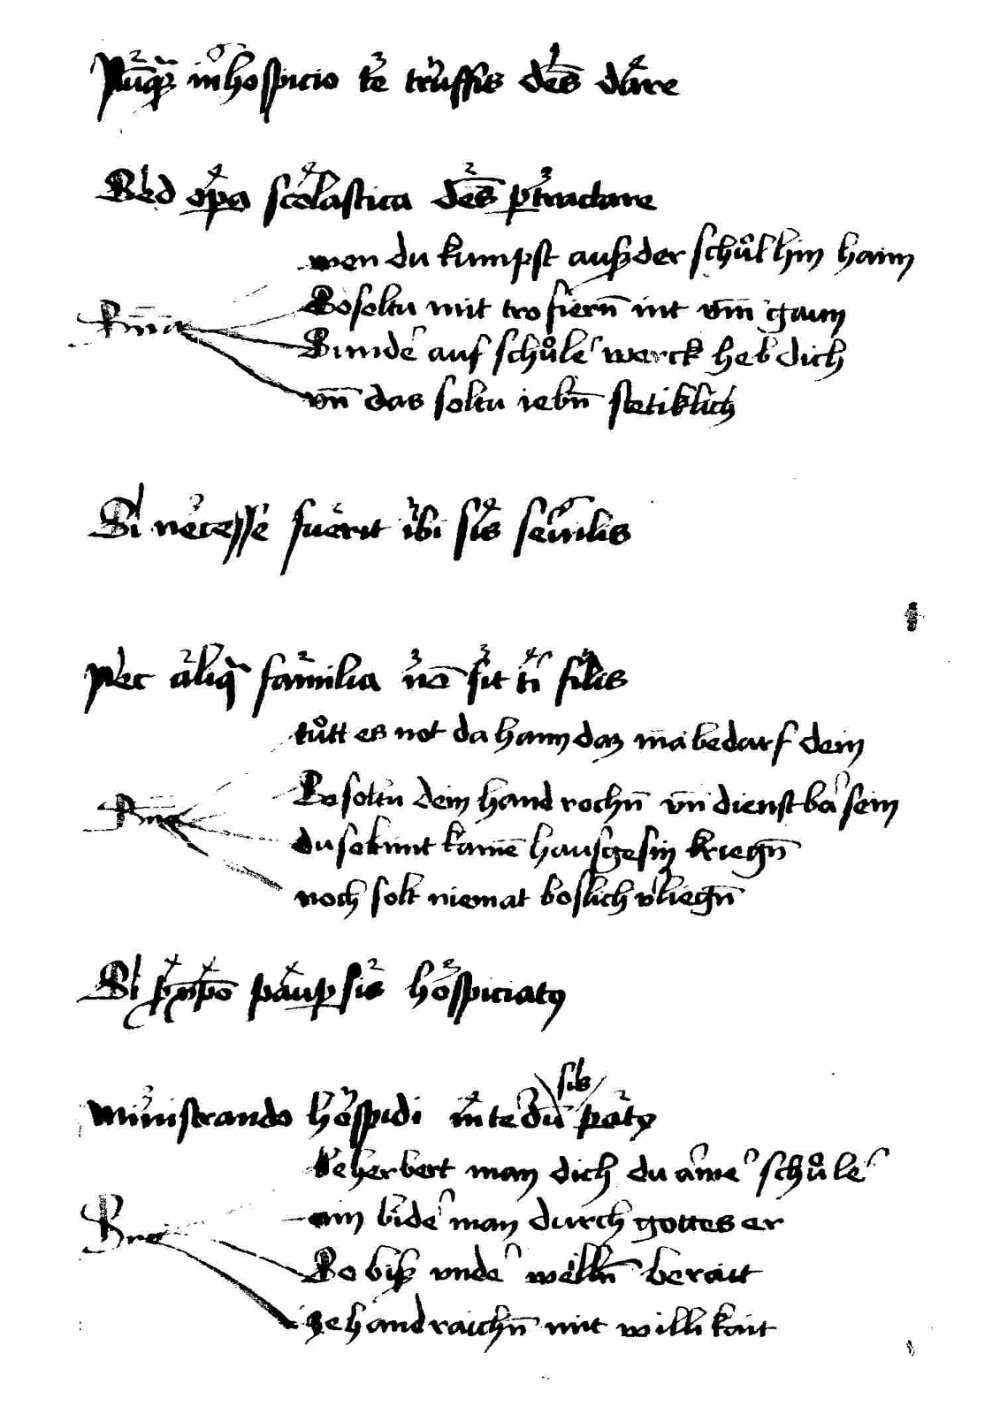 Nūq̄ȝ in hospicio te truffis debēs dare
Sed opa scolastica debēs ptractare
wen du kumpst auß der schůl hin haim
So soltu mit trofiern̄ nit vm̄ gaun
Sunder auf schůler werck heb dich
vn̄ das soltu iebn̄ stetiklich
Si necesse fuerit ibi sis seruilis
Nec aliqua familia nō sit ti silis
tůtt es not da haim daz mā bedarf dein
So soltu dein hand rochn̄ vn̄ dienstbar sein
du solt mit kaim̄ hausgesin kriegn̄
noch solt niemāt boslich vliegn̄
Si paup sis hospiciatꝰ
Ministrando hospidi sis patꝰ
beherbert man dich du armer schůler
ain bider man durch gottes er
So biß under welln̄ beraitt
ze handraichn̄ mit willikait